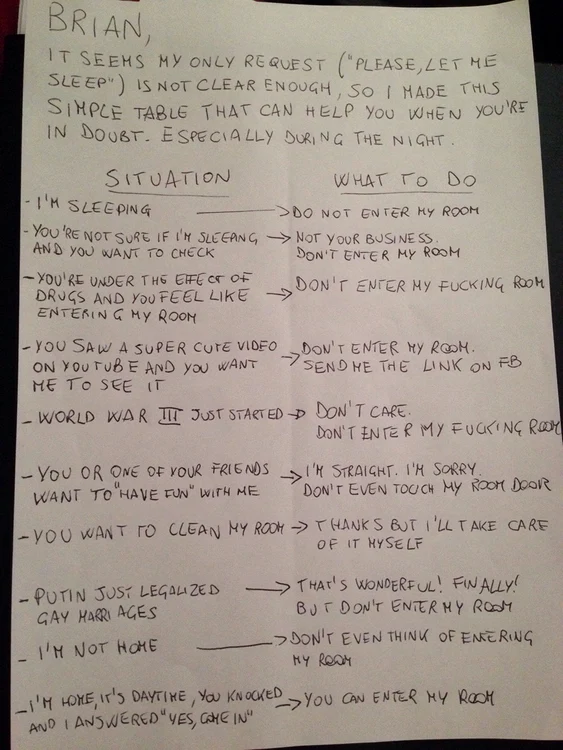 BRIAN,
IT SEEMS MY ONLY REQUEST ("PLEASE, LET ME
SLEEP") IS NOT CLEAR ENOUGH, SO I MADE THIS
SIMPLE TABLE THAT CAN HELP YOU WHEN YOU'RE
IN DOUBT. ESPECIALLY DURING THE NIGHT.
SITUATION WHAT TO DO
- I'M SLEEPING → DO NOT ENTER MY ROOM
- YOU'RE NOT SURE IF I'M SLEEPING → NOT YOUR BUSINESS.
AND YOU WANT TO CHECK DON'T ENTER MY ROOM
- YOU'RE UNDER THE EFFECT OF
DRUGS AND YOU FEEL LIKE → DON'T ENTER MY FUCKING ROOM
ENTERING MY ROOM
- YOU SAW A SUPER CUTE VIDEO → DON'T ENTER MY ROOM.
ON YOUTUBE AND YOU WANT SEND ME THE LINK ON FB
ME TO SEE IT
- WORLD WAR III JUST STARTED → DON'T CARE.
DON'T ENTER MY FUCKING ROOM
- YOU OR ONE OF YOUR FRIENDS → I'M STRAIGHT. I'M SORRY.
WANT TO "HAVE FUN" WITH ME DON'T EVEN TOUCH MY ROOM DOOR
- YOU WANT TO CLEAN MY ROOM → THANKS BUT I'LL TAKE CARE
OF IT MYSELF
- PUTIN JUST LEGALIZED → THAT'S WONDERFUL! FINALLY!
GAY MARRIAGES BUT DON'T ENTER MY ROOM
- I'M NOT HOME → DON'T EVEN THINK OF ENTERING
MY ROOM
- I'M HOME, IT'S DAYTIME, YOU KNOCKED → YOU CAN ENTER MY ROOM
AND I ANSWERED "YES, COME IN"